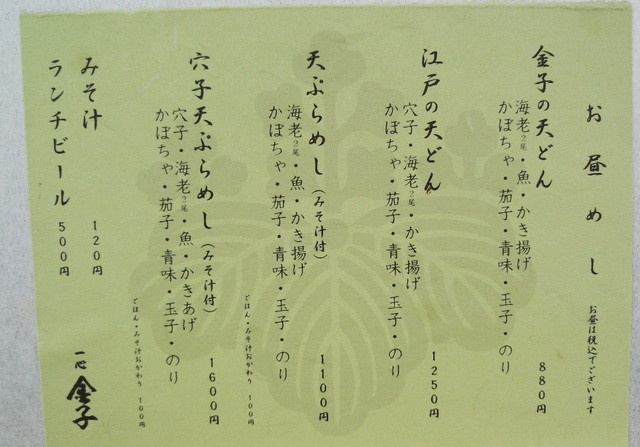 お昼めし
お昼は税込でございます
金子の天どん
海老2尾・魚・かき揚げ
かぼちゃ・茄子・青味・玉子・のり
880円
江戸の天どん
穴子・海老2尾・かき揚げ
かぼちゃ・茄子・青味・玉子・のり
1250円
天ぷらめし(みそ汁付)
海老2尾・魚・かき揚げ
かぼちゃ・茄子・青味・玉子・のり
1100円
ごはん・みそ汁おかわり 100円
穴子天ぷらめし(みそ汁付)
穴子・海老2尾・魚・かきあげ
かぼちゃ・茄子・青味・玉子・のり
1600円
ごはん・みそ汁おかわり 100円
みそ汁 120円
ランチビール 500円
一心 金子